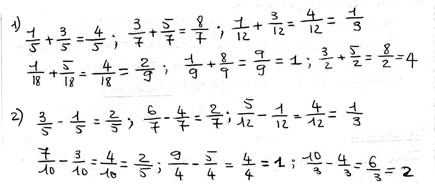 1) 1/5 + 3/5 = 4/5 ; 3/7 + 5/7 = 8/7 ; 1/12 + 3/12 = 4/12 = 1/3
1/18 + 5/18 = 4/18 = 2/9 ; 1/9 + 8/9 = 9/9 = 1 ; 3/2 + 5/2 = 8/2 = 4
2) 3/5 - 1/5 = 2/5 ; 6/7 - 4/7 = 2/7 ; 5/12 - 1/12 = 4/12 = 1/3
7/10 - 3/10 = 4/10 = 2/5 ; 9/4 - 5/4 = 4/4 = 1 ; 10/3 - 4/3 = 6/3 = 2